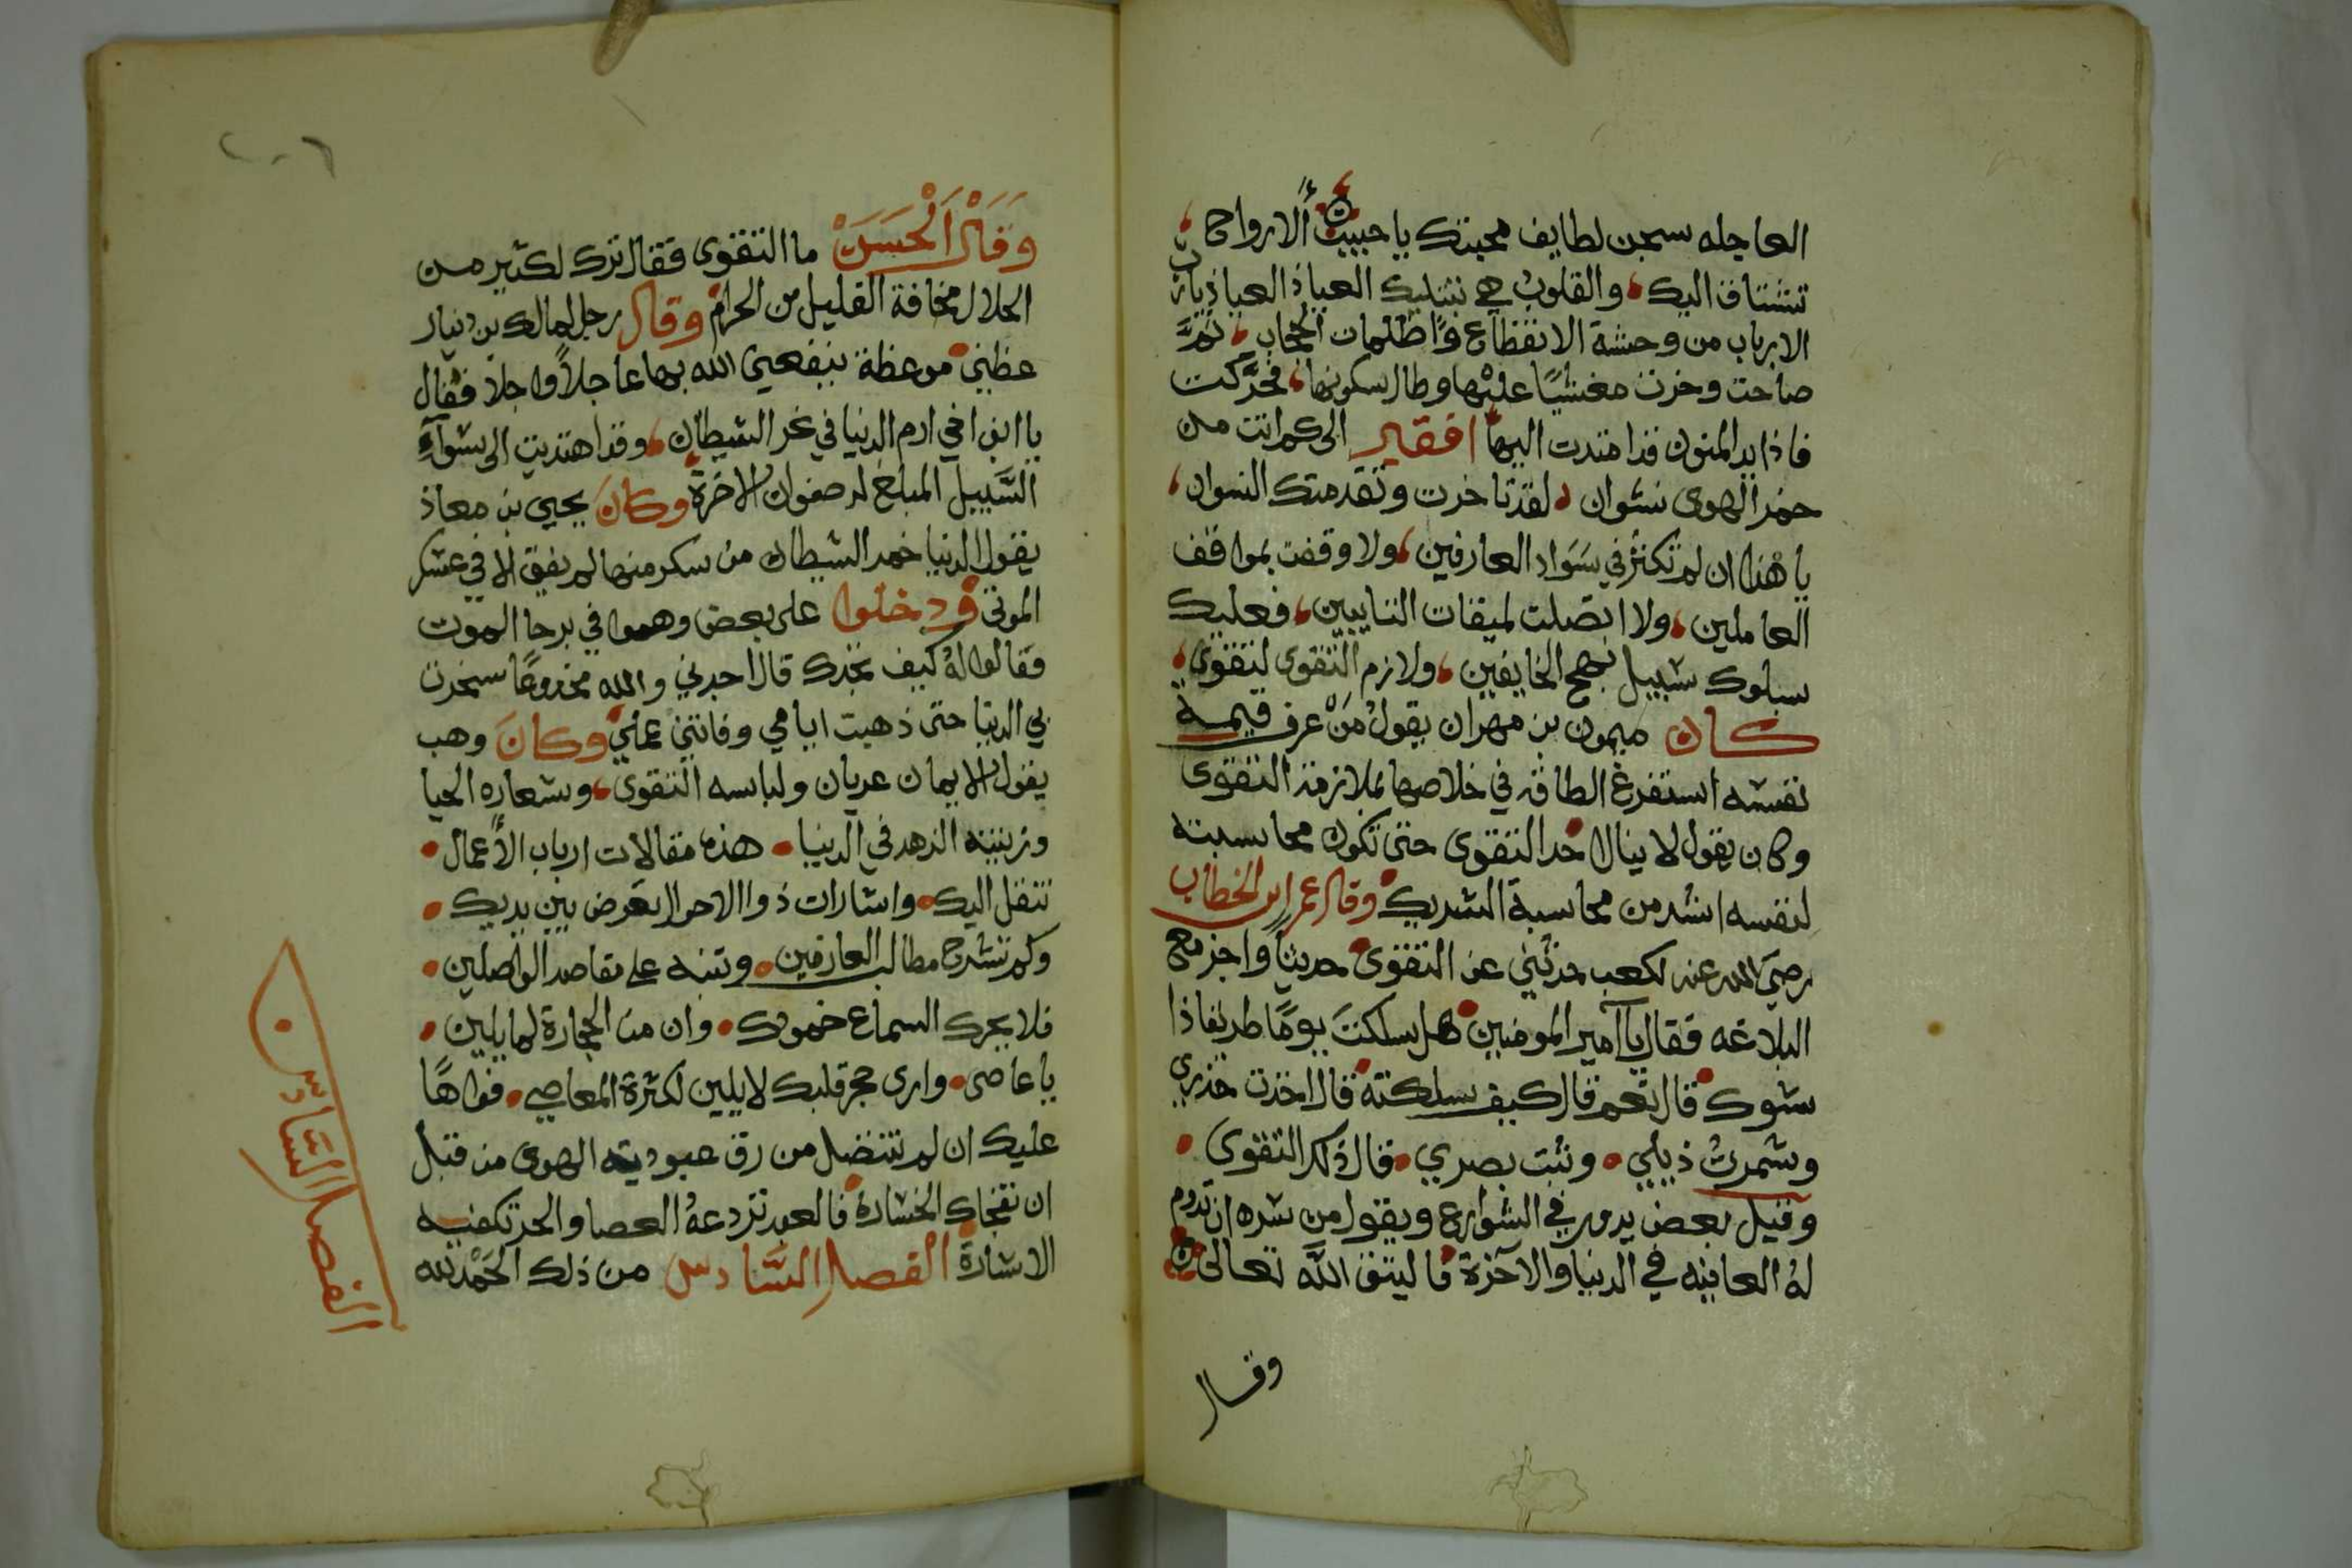 العاجله سجن لطايف محبتك يا حبيب الارواح
تشتاق اليك والقلوب هي بتنليك العياذ العياذ يارب
الارباب من وحشة الانقطاع واظلمات الحجاب ثمَّ
صاحت وخرت مغشيًا عليها وطال سكونها فحرَّكت
فاذا يد المنون قد امتدت اليها افقير الى كم انت من
خمر الهوى نشوان لقد تاخرت وتقدمتك النسوان
يا هذا ان لم تكثر في سَوَاد العارفين ولا وقفت بمواقف
العاملين ولا اتصلت لميقات التايبين فعليك
بسلوك سبيل نهج الخايفين ولازم التقوى لتقوى
كان ميمون بن مهران يقول مَنْ عرف قيمة
نفسه استفرغ الطاقه في خلاصها بملازمة التقوى
وكان يقول لا ينال احد التقوى حتى تكون محاسبته
لنفسه اشد من محاسبة الشريك وقال عمر ابن الخطاب
رضيَ الله عنه لكعب حدثني عن التقوى حديثًا واجز مع
البلاغه فقال يا آمير المومنين هل سلكتَ يومًا طريقا ذا
شوك قال نعم قال كيف سلكته قال اخذت حذري
وشمرتُ ذيلي وثبت بصري قال ذلك التقوى
وقيل بعض يدور في الشوارع ويقول من سره ان تدوم
لهُ العافيه في الدنيا والآخرة فاليتق الله تعالى
وقال
وَقَالَ اَلْحَسَنْ ما التقوى فقال ترك لكثير من
الحلال مخافة القليل من الحرام وقال رجل لمالك بن دينار
عظني موعظة ينفعني الله بها عاجلاً واجلاً فقال
يا ابن اخي ارم الدنيا في نحر الشيطان وقد اهتديت الى سَوَآءِ
السَّبيل المبلغ لرضوان الاخرة وكانَ يحيي بن معاذ
يقول الدنيا خمر الشيطان من سكر منها لم يفق الا في عسكر
الموتى ودخلوا على بعض وهموا في برحا الموت
فقالوا لهُ كيف نجدك قال اجدني والله مخدوعًا سخرت
بي الدنيا حتى ذهبت ايامي وفاتني عملي وكانَ وهب
يقول الايمان عريان ولباسه التقوى وشعاره الحيا
وزينته الزهد في الدنيا هذه مقالات ارباب الأعمال
تنقل اليك واشارات ذوا الاحوال تعرض بين يديك
وكم تشرح مطالب العارفين وتنبه على مقاصد الواصلين
فلا يحرك السماع خمودك وان من الحجارة لما يلين
يا عاصى وارى حجر قلبك لا يلين لكثرة المعاصي فواهًا
عليك ان لم تتنضل من رق عبوديته الهوى من قبل
ان تفجاك الخسارة فالعبد تردعهُ العصا والحر تكفيه
الاشارة الفصل السَّادس من ذلك الحَمْد لله
الفصل السَّادس